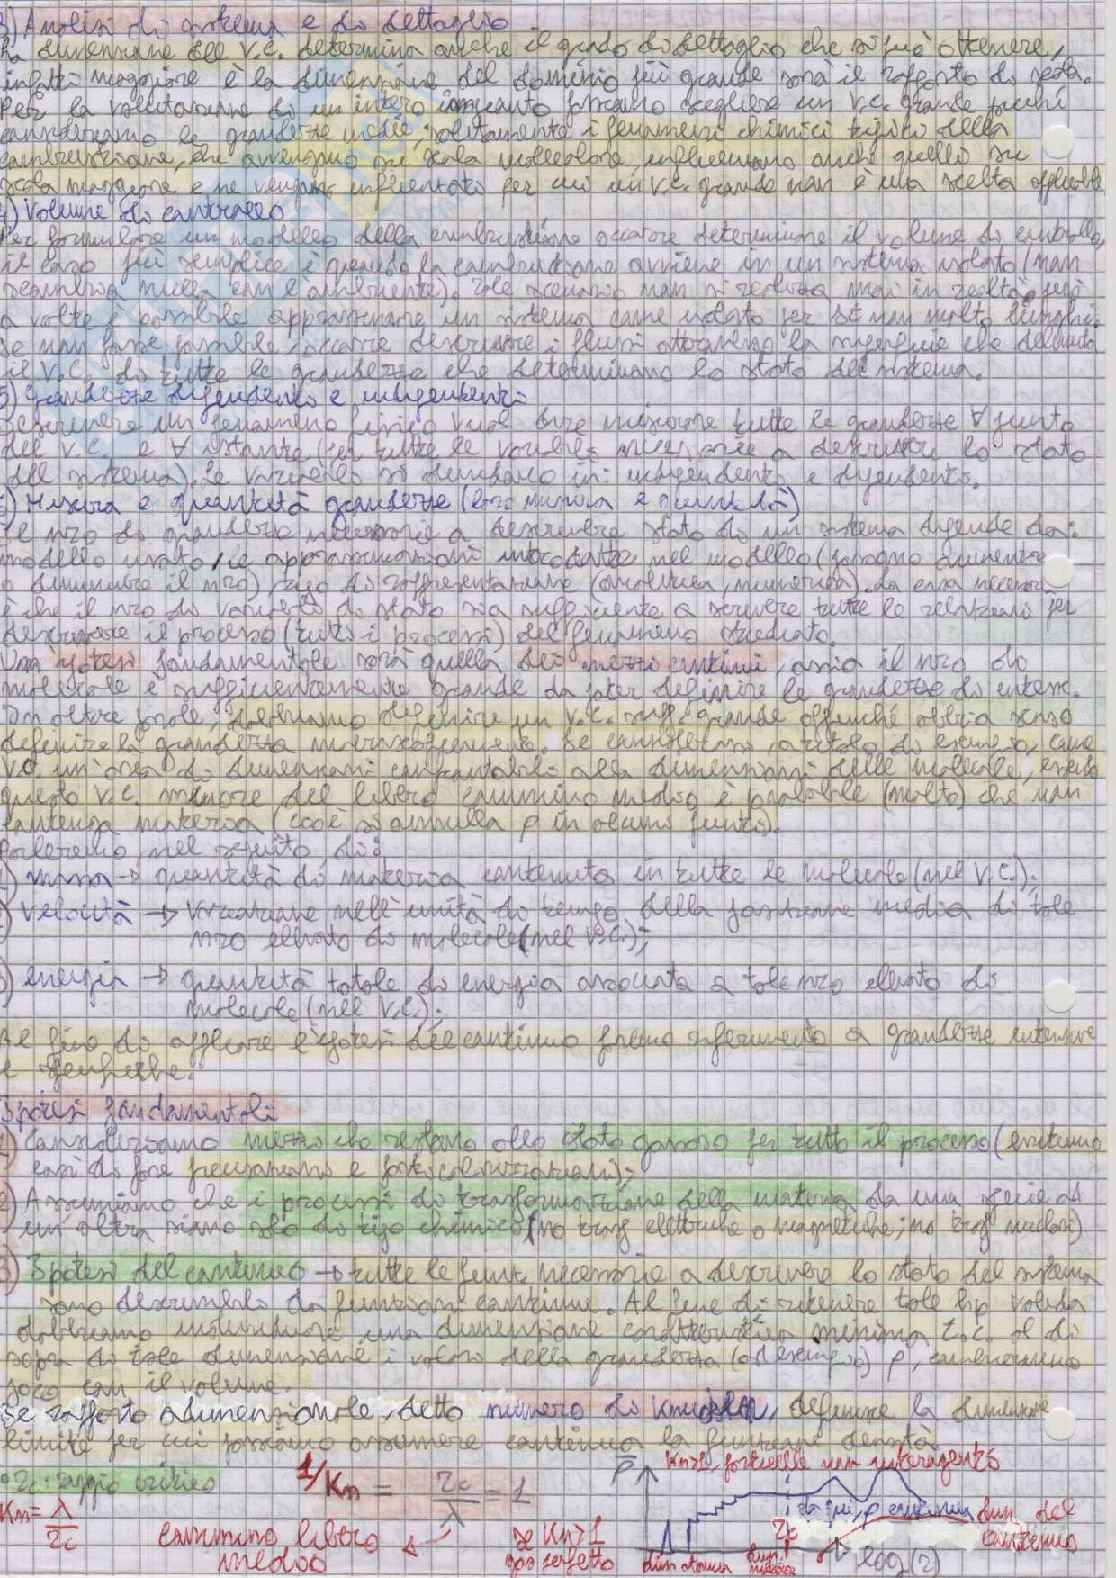 3) Analisi di sistema e di dettaglio
La dimensione del V.C. determina anche il grado di dettaglio che si può ottenere,
infatti maggiore è la dimensione del dominio più grande sarà il rapporto di scala.
Per la valutazione di un intero impianto possiamo scegliere un V.C. grande perché
consideriamo le grandezze medie, solitamente i fenomeni chimici tipici della
combustione, che avvengono su scala molecolare influenzano anche quelli su
scala maggiore e ne vengono influenzati per cui un V.C. grande non è una scelta applicabile
4) Volume di controllo
Per formulare un modello della combustione occorre determinare il volume di controllo,
il caso più semplice è quando la combustione avviene in un sistema isolato (non
scambia nulla con l'ambiente). Tale scenario non si realizza mai in realtà, però
a volte è possibile approssimare un sistema come isolato per Δt non molto lunghi.
Se non fosse possibile occorre descrivere i flussi attraverso la superficie che delimita
il V.C. di tutte le grandezze che determinano lo stato del sistema.
5) Grandezze dipendenti e indipendenti
Descrivere un fenomeno fisico vuol dire misurare tutte le grandezze ∀ punto
del V.C. e ∀ istante (per tutte le variabili necessarie a descrivere lo stato
del sistema). Le variabili si dividono in: indipendenti e dipendenti.
6) Misura e quantità grandezze (loro misura e quantità)
Il nro di grandezze necessarie a descrivere stato di un sistema dipende da:
modello usato, le approssimazioni introdotte nel modello (possono aumentare
o diminuire il nro), tipo di rappresentazione (analitica, numerica). La cosa necessaria
è che il nro di variabili di stato sia sufficiente a scrivere tutte le relazioni per
descrivere il processo (tutti i processi) del fenomeno studiato.
Una ipotesi fondamentale sarà quella dei mezzi continui, ossia il nro di
molecole è sufficientemente grande da poter definire le grandezze di interesse.
In altre parole, dobbiamo definire un V.C. suff. grande affinché abbia senso
definire la grandezza macroscopicamente. Se consideriamo, a titolo di esempio, come
V.C. un'area di dimensioni confrontabili alla dimensioni delle molecole, essendo
questo V.C. minore del libero cammino medio è probabile (molto) che non
contenga materia (cioè si annulla ρ in alcuni punti).
Parleremo nel seguito di:
1) massa → quantità di materia contenuta in tutte le molecole (nel V.C.);
2) velocità → variazione nell'unità di tempo della posizione media di tale
nro elevato di molecole (nel V.C.);
3) energia → quantità totale di energia associata a tale nro elevato di
molecole (nel V.C.);
Al fine di applicare l'ipotesi del continuo faremo riferimento a grandezze intensive
e specifiche.
Ipotesi fondamentali
1) Consideriamo mezzi che restano allo stato gassoso per tutto il processo (evitiamo
casi di fase
2) Assumiamo che i processi di trasformazione della materia da una specie ad
un'altra siano solo di tipo chimico (no trasf elettriche o magnetiche; no trasf nucleari)
3) Ipotesi del continuo → tutte le funz. necessarie a descrivere lo stato del sistema
sono descrivibili da funzioni continue. Al fine di ritenere tale hp valida
dobbiamo introdurre una dimensione caratteristica minima t.c. al di
sopra di tale dimensione i valori della grandezza (ad esempio) ρ, cambieranno
poco con il volume.
Il rapporto adimensionale, detto numero di Knudsen, definisce la dimensione
limite per cui possiamo assumere continua la funzione densità
rc: raggio critico
1/Kn = rc/λ = 1
Kn = λ/rc
cammino libero
medio
se Kn>1
gas perfetto
ρ
Kn>1, particelle non interagenti
rc
ρ continua
dim. del
continuo
dim atomica
log(r)